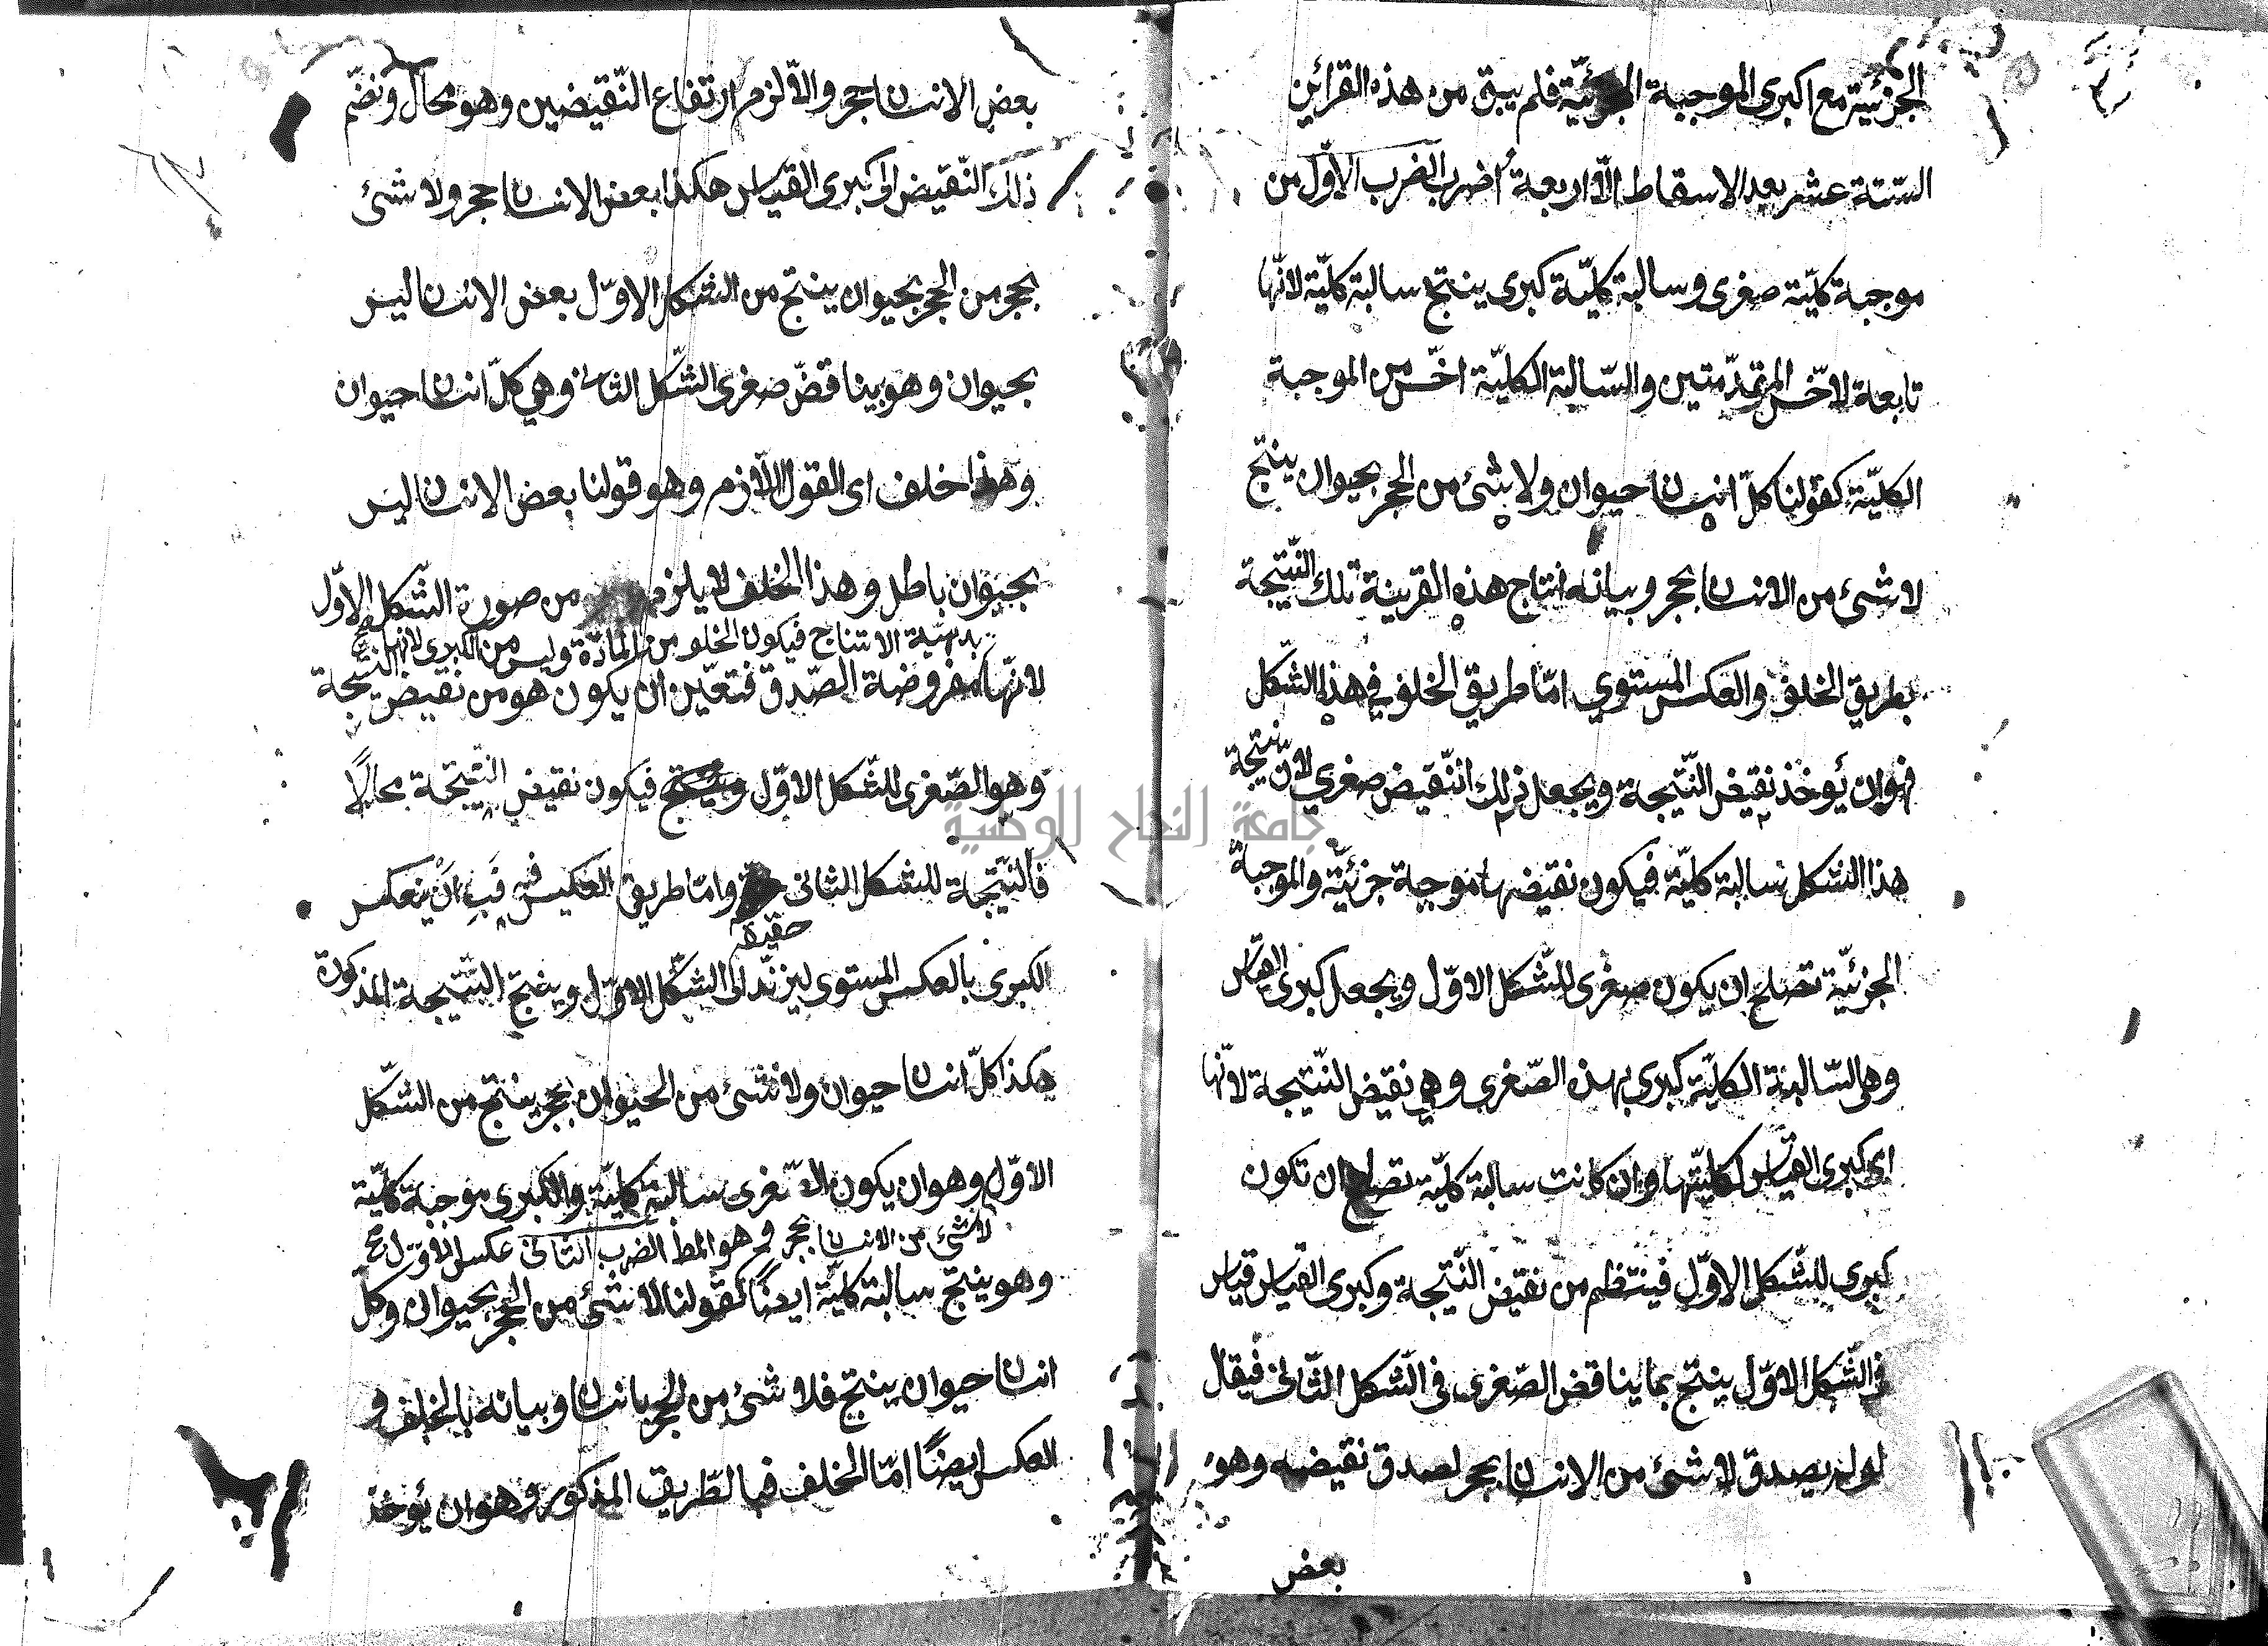 الجزئية مع اكبرى الموجبة الجزئيّة فلم يبق من هذه القرائن
السّتة عشر بعد الاسقاط الّا اربعة أضرب الضرب الاوّل من
موجبة كلّيّة صغرى وسالبة كلّيّة كبرى ينتج سالبة كلّيّة لانّها
تابعة لاخّس المقدّمتين والسّالبة الكليّة اخّس من الموجبة
الكليّة كقولنا كلّ انسان حيوان ولا شئ من الحجر بحيوان ينتج
لا شئ من الانسان بحجر وبيانه انتاج هذه القرينة تلك النّتيجة
بطريق الخلف والعكس المستوي امّا طريق الخلف في هذا الشّكل
فهوان يُوخذ نقيض النّتيجة ويجعل ذلك النّقيض صغري لانّ نتيجة
هذا الشكل سالبة كليّة فيكون نقيضها موجبة جزئيّة والموجبة
الجزئيّة تصلح ان يكون صغرى للشّكل الاوّل ويجعل كبرى القياس
وهى السّالبة الكليّة كبرى بهذه الصّغرى وهي نقيض النّتيجة لانّها
اى كبرى القياس لكليّتها وان كانت سالبة كليّة تصلح ان تكون
كبرى للشّكل الاوّل فينتظم من نقيض النّتيجة وكبرى القياس قياس
في الشّكل الاوّل ينتج بما يناقض الصّغرى فى الشّكل الثّانى فيقال
لولم يصدق لا شئ من الانسان بحجر لصدق نقيضه وهو
بعض
بعض الانسان حجر والّا لزم ارتفاع النّقيضين وهو محال ونضّم
ذلك النّقيض الى كبرى القياس هكذا بعض الانسان حجر ولا شئ
بحجر من الحجر بحيوان ينتج من الشكل الاوّل بعض الانسان ليس
بحيوان وهو يناقض صغرى الشّكل الثانى وهي كلّ انسان حيوان
وهذا خلف اى القول اللّازم وهو قولنا بعض الانسان ليس
بحيوان باطل وهذا الخلف لا يلزم من صورة الشّكل الاوّل
بديهيّة الانتاج فيكون الخلف من المادّة وليس من الكبرى لانها صح
لانّها مفروضة الصّدق فتعيّن ان يكون هو من نقيض النّتيجة
وهو الصّغرى للشّكل الاوّل فيكون نقيض النّتيجة محالًا
فالنّتيجة للشكل الثانى وامّا طريق العكس فيه فَبِاَنْ ينعكس
حقيقة
الكبرى بالعكس المستوى ليرتدّ الى الشّكل الاوّل وينتج النّتيجة المذكورة
هكذا كلّ انسان حيوان ولا شئ من الحيوان بحجر ينتج من الشّكل
الاوّل وهوان يكون الصّغرى سالبة كليّة والكبرى موجبة كليّة
لا شئ من الانسان بحجر وهو المط الضرب الثانى عكس الاوّل صح
وهو ينتج سالبة كليّة ايضًا كقولنا لا شئ من الحجر بحيوان وكل
انسان حيوان ينتج فلا شئ من الحجر بانسان وبيانه بالخلف و
العكس ايضًا امّا الخلف فبالطّريق المذكور وهوان يُوخذ
جامعة النجاح الوطنية